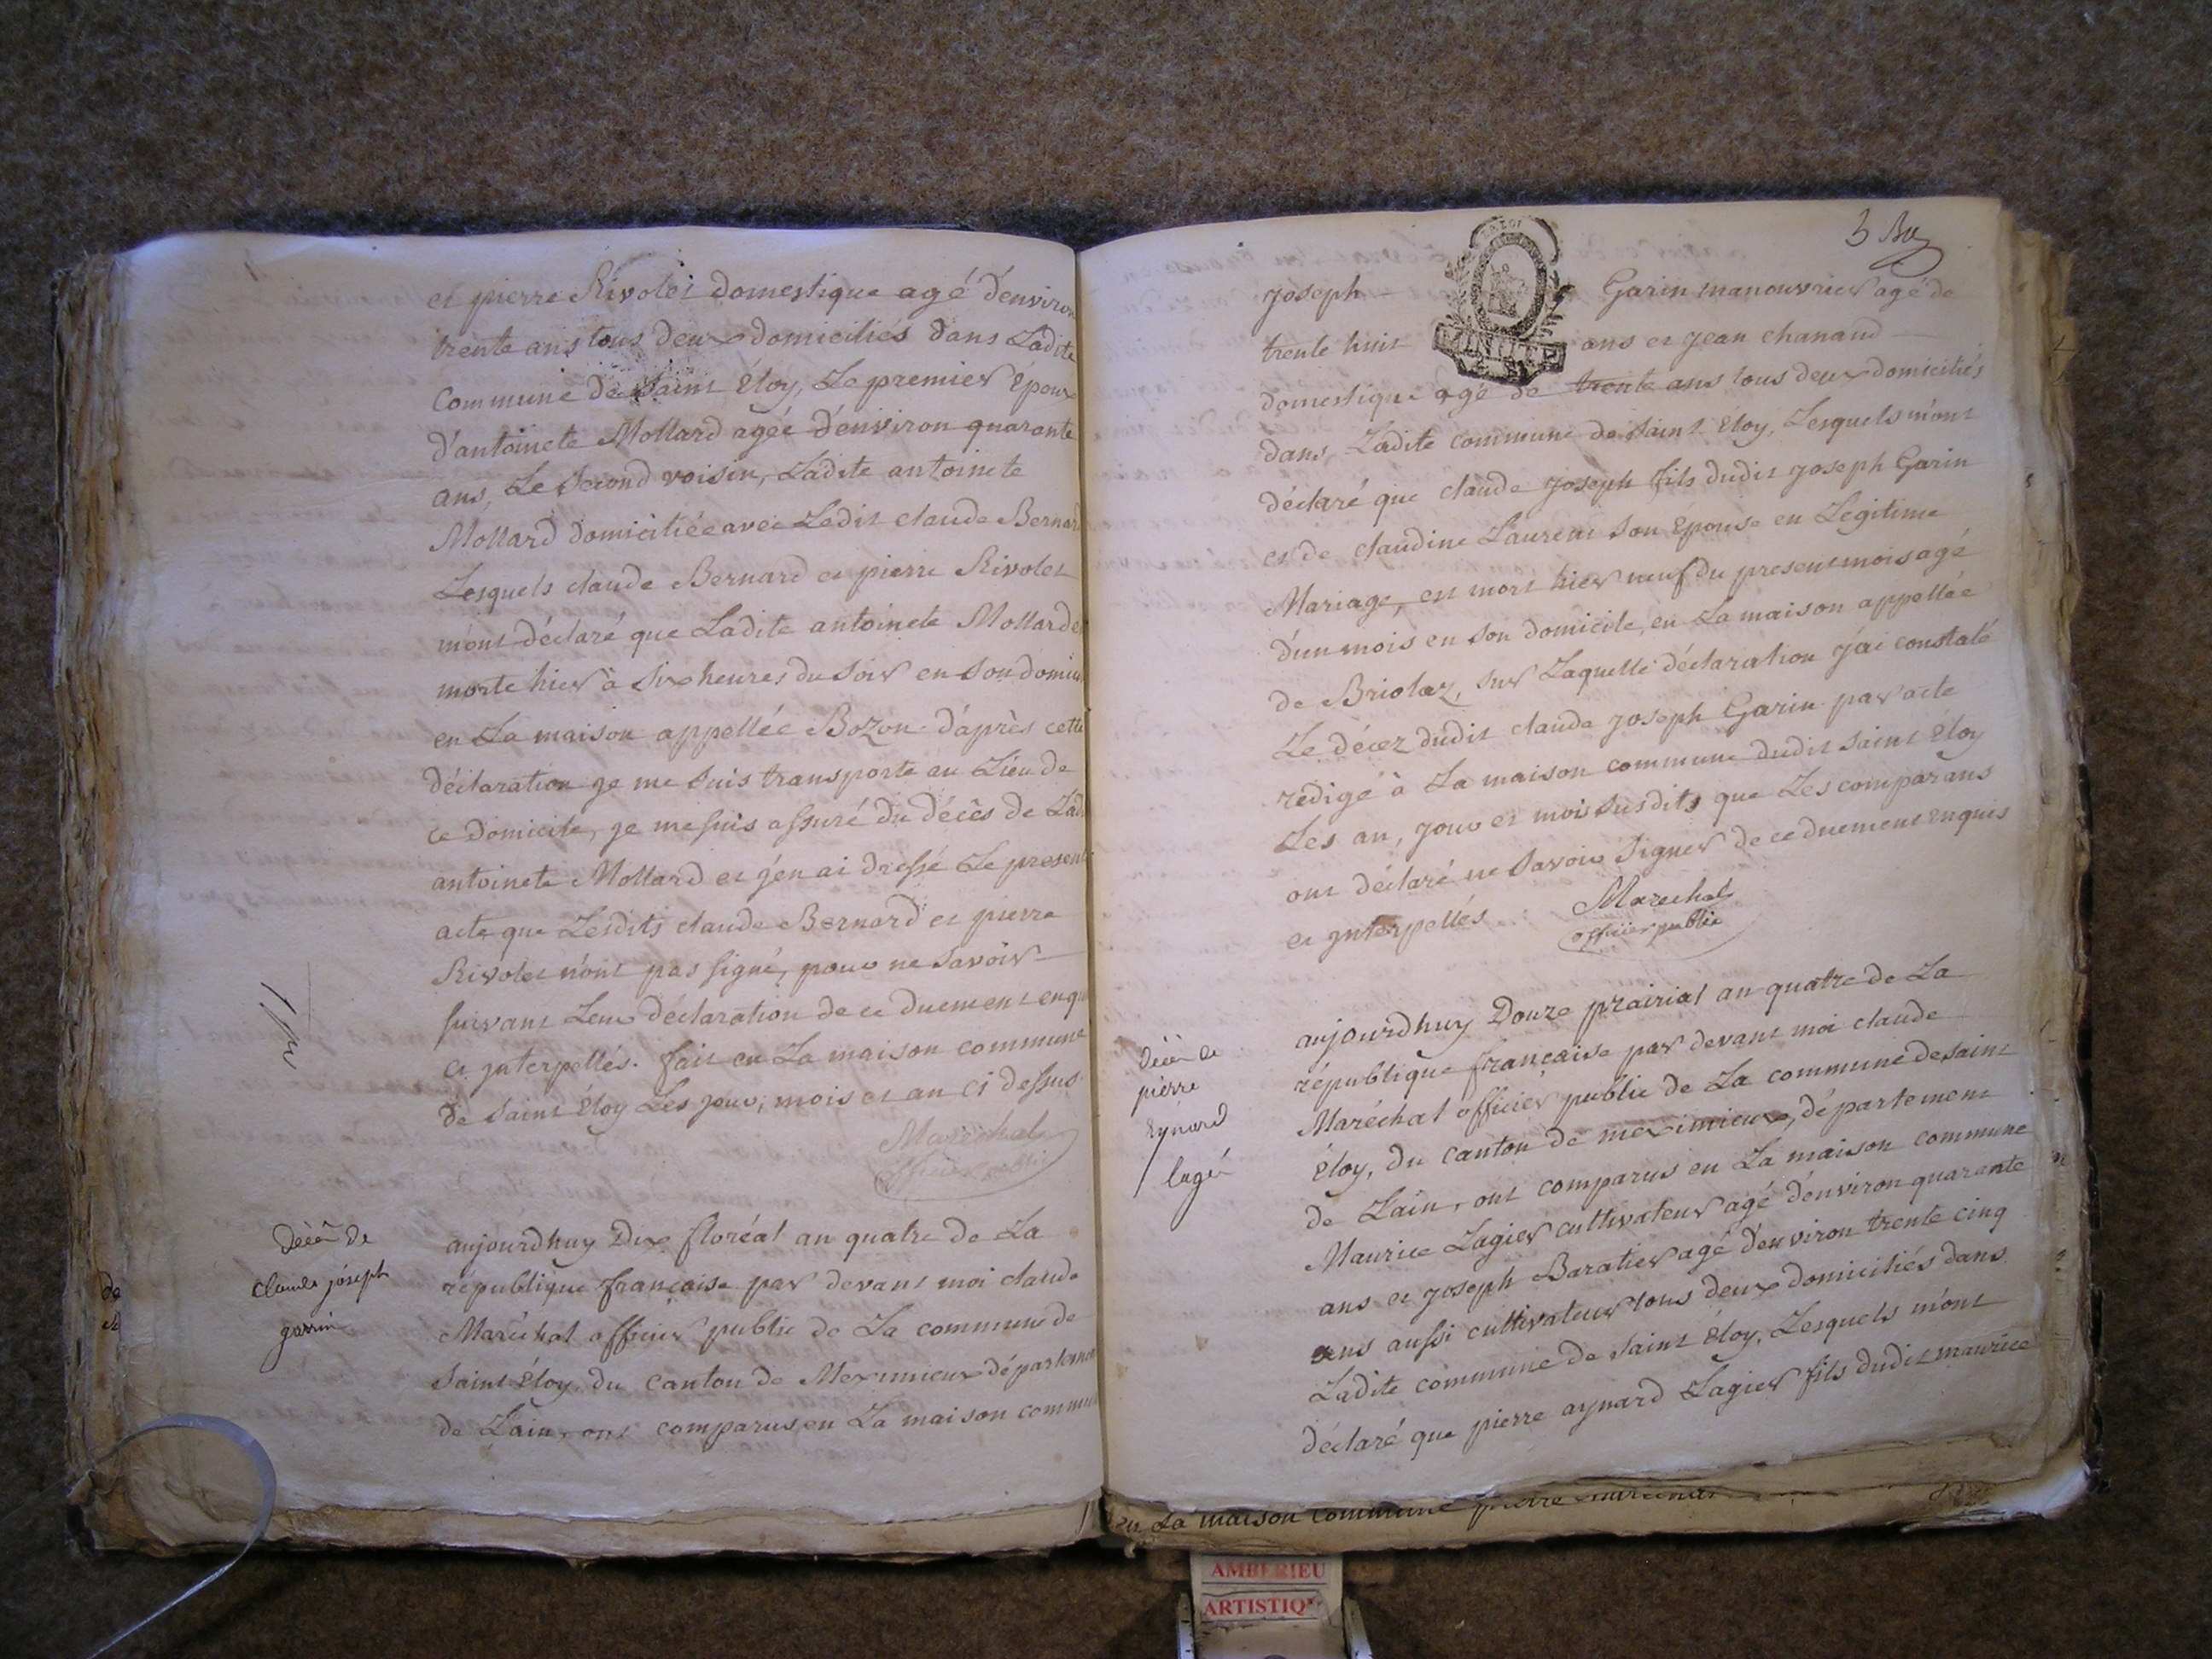 et pierre Rivolet domestique agé d'environ
trente ans tous deux domiciliés dans Ladite
Commune de Saint Éloy, Le premier Époux
d'antoinete Mollard agée d'environ quarante
ans, Le Second voisin, Ladite antoinete
Mollard domiciliée avec Ledit claude Bernard
Lesquels claude Bernard et pierre Rivolet
m'ont déclaré que Ladite antoinete Mollard
morte hier à Six heures du Soir en Son
en La maison appellée Bozon d'après cette
déclaration je me Suis transporté au Lieu de
ce Domicile, je me suis assuré du décès de
antoinete Mollard et j'en ai dressé Le present
acte que Lesdits claude Bernard et pierre
Rivolet n'ont pas signé, pour ne Savoir
suivant Leur déclaration de ce duement
et interpellés. fait en La maison commune
de Saint Éloy Les jour, mois et an ci dessus.
Maréchal
officier public
Décès de
claude joseph
garrin
aujourdhuy Dix floréal an quatre de La
république française par devant moi claude
Maréchal officier public de La commune de
Saint Éloy, du Canton de Meximieux département
de L'ain, ont comparus en La maison
joseph Garin manouvrier agé de
trente huit ans et jean chanaud
domestique agé de trente ans tous deux domiciliés
dans Ladite commune de Saint Éloy, Lesquels m'ont
déclaré que claude joseph fils dudit joseph Garin
et de claudine Laurent Son Epouse en Légitime
Mariage, est mort hier neuf du present mois agé
d'un mois en Son domicile, en La maison appellée
de Briolaz, Sur Laquelle déclaration j'ai constaté
Le décez dudit claude joseph Garin par acte
redigé à La maison commune dudit Saint Éloy
Les an, jour et mois Susdits que Les comparans
ont déclaré ne Savoir Signer de ce duement enquis
et interpellés
Marechal
officier public
Décès de
pierre
eynard
lagié
aujourdhuy Douze prairial an quatre de La
république française par devant moi claude
Maréchal officier public de La commune de saint
Éloy, du Canton de meximieux, département
de L'ain, ont comparus en La maison commune
Maurice Lagier cultivateur agé d'environ quarante
ans et joseph Baratier agé d'environ trente cinq
ans aussi cultivateur tous deux domiciliés dans
Ladite commune de Saint Éloy, Lesquels m'ont
déclaré que pierre aynard Lagier fils dudit maurice
en La maison commune pierre
AMBERIEU
ARTISTIQ